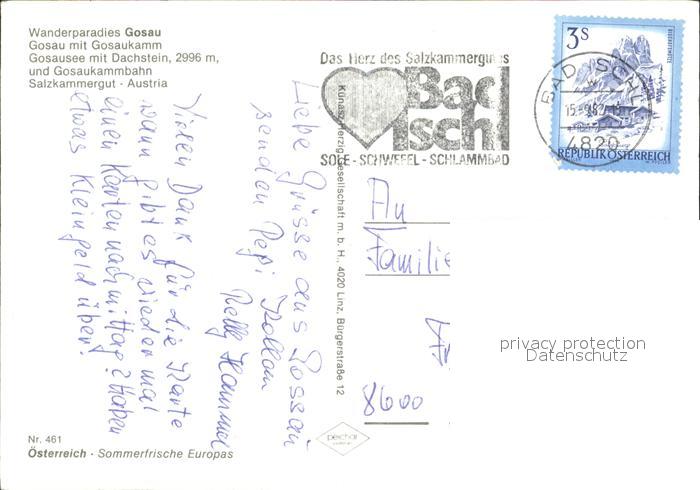 Wanderparadies Gosau
Gosau mit Gosaukamm
Gosausee mit Dachstein, 2996 m,
und Gosaukammbahn
Salzkammergut - Austria
Das Herz des Salzkammergutes
Bad
Ischl
SOLE - SCHWEFEL - SCHLAMMBAD
3 S
BAD ISCHL
4820
REPUBLIK ÖSTERREICH
Liebe Grüsse aus Gossau
senden Pepi
Nelly Hammel
Vielen Dank für die Karte
wann gibt es wieder mal
einen Kartennachmittag? Haben
etwas Kleingeld übrig!
Kunaas, Herzig Gesellschaft m. b. H., 4020 Linz, Bürgerstraße 12
An
Familie
8600
privacy protection
Datenschutz
peichar
Nr. 461
Österreich - Sommerfrische Europas